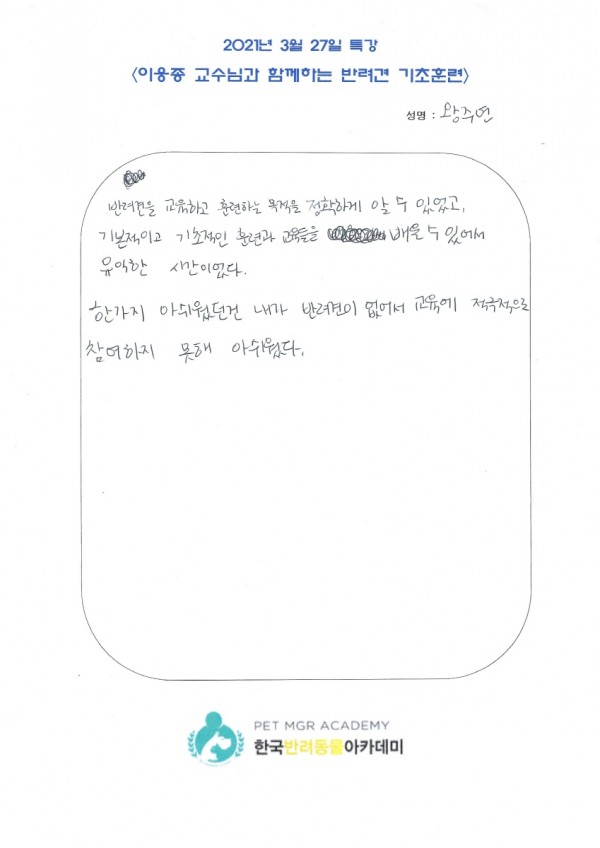 2021년 3월 27일 특강
<이웅종 교수님과 함께하는 반려견 기초훈련>
성명 : 왕주연
반려견을 교육하고 훈련하는 목적을 정확하게 알 수 있었고,
기본적이고 기초적인 훈련과 교육들을 배울 수 있어서
유익한 시간이었다.
한가지 아쉬웠던건 내가 반려견이 없어서 교육에 적극적으로
참여하지 못해 아쉬웠다.
PET MGR ACADEMY
한국반려동물아카데미